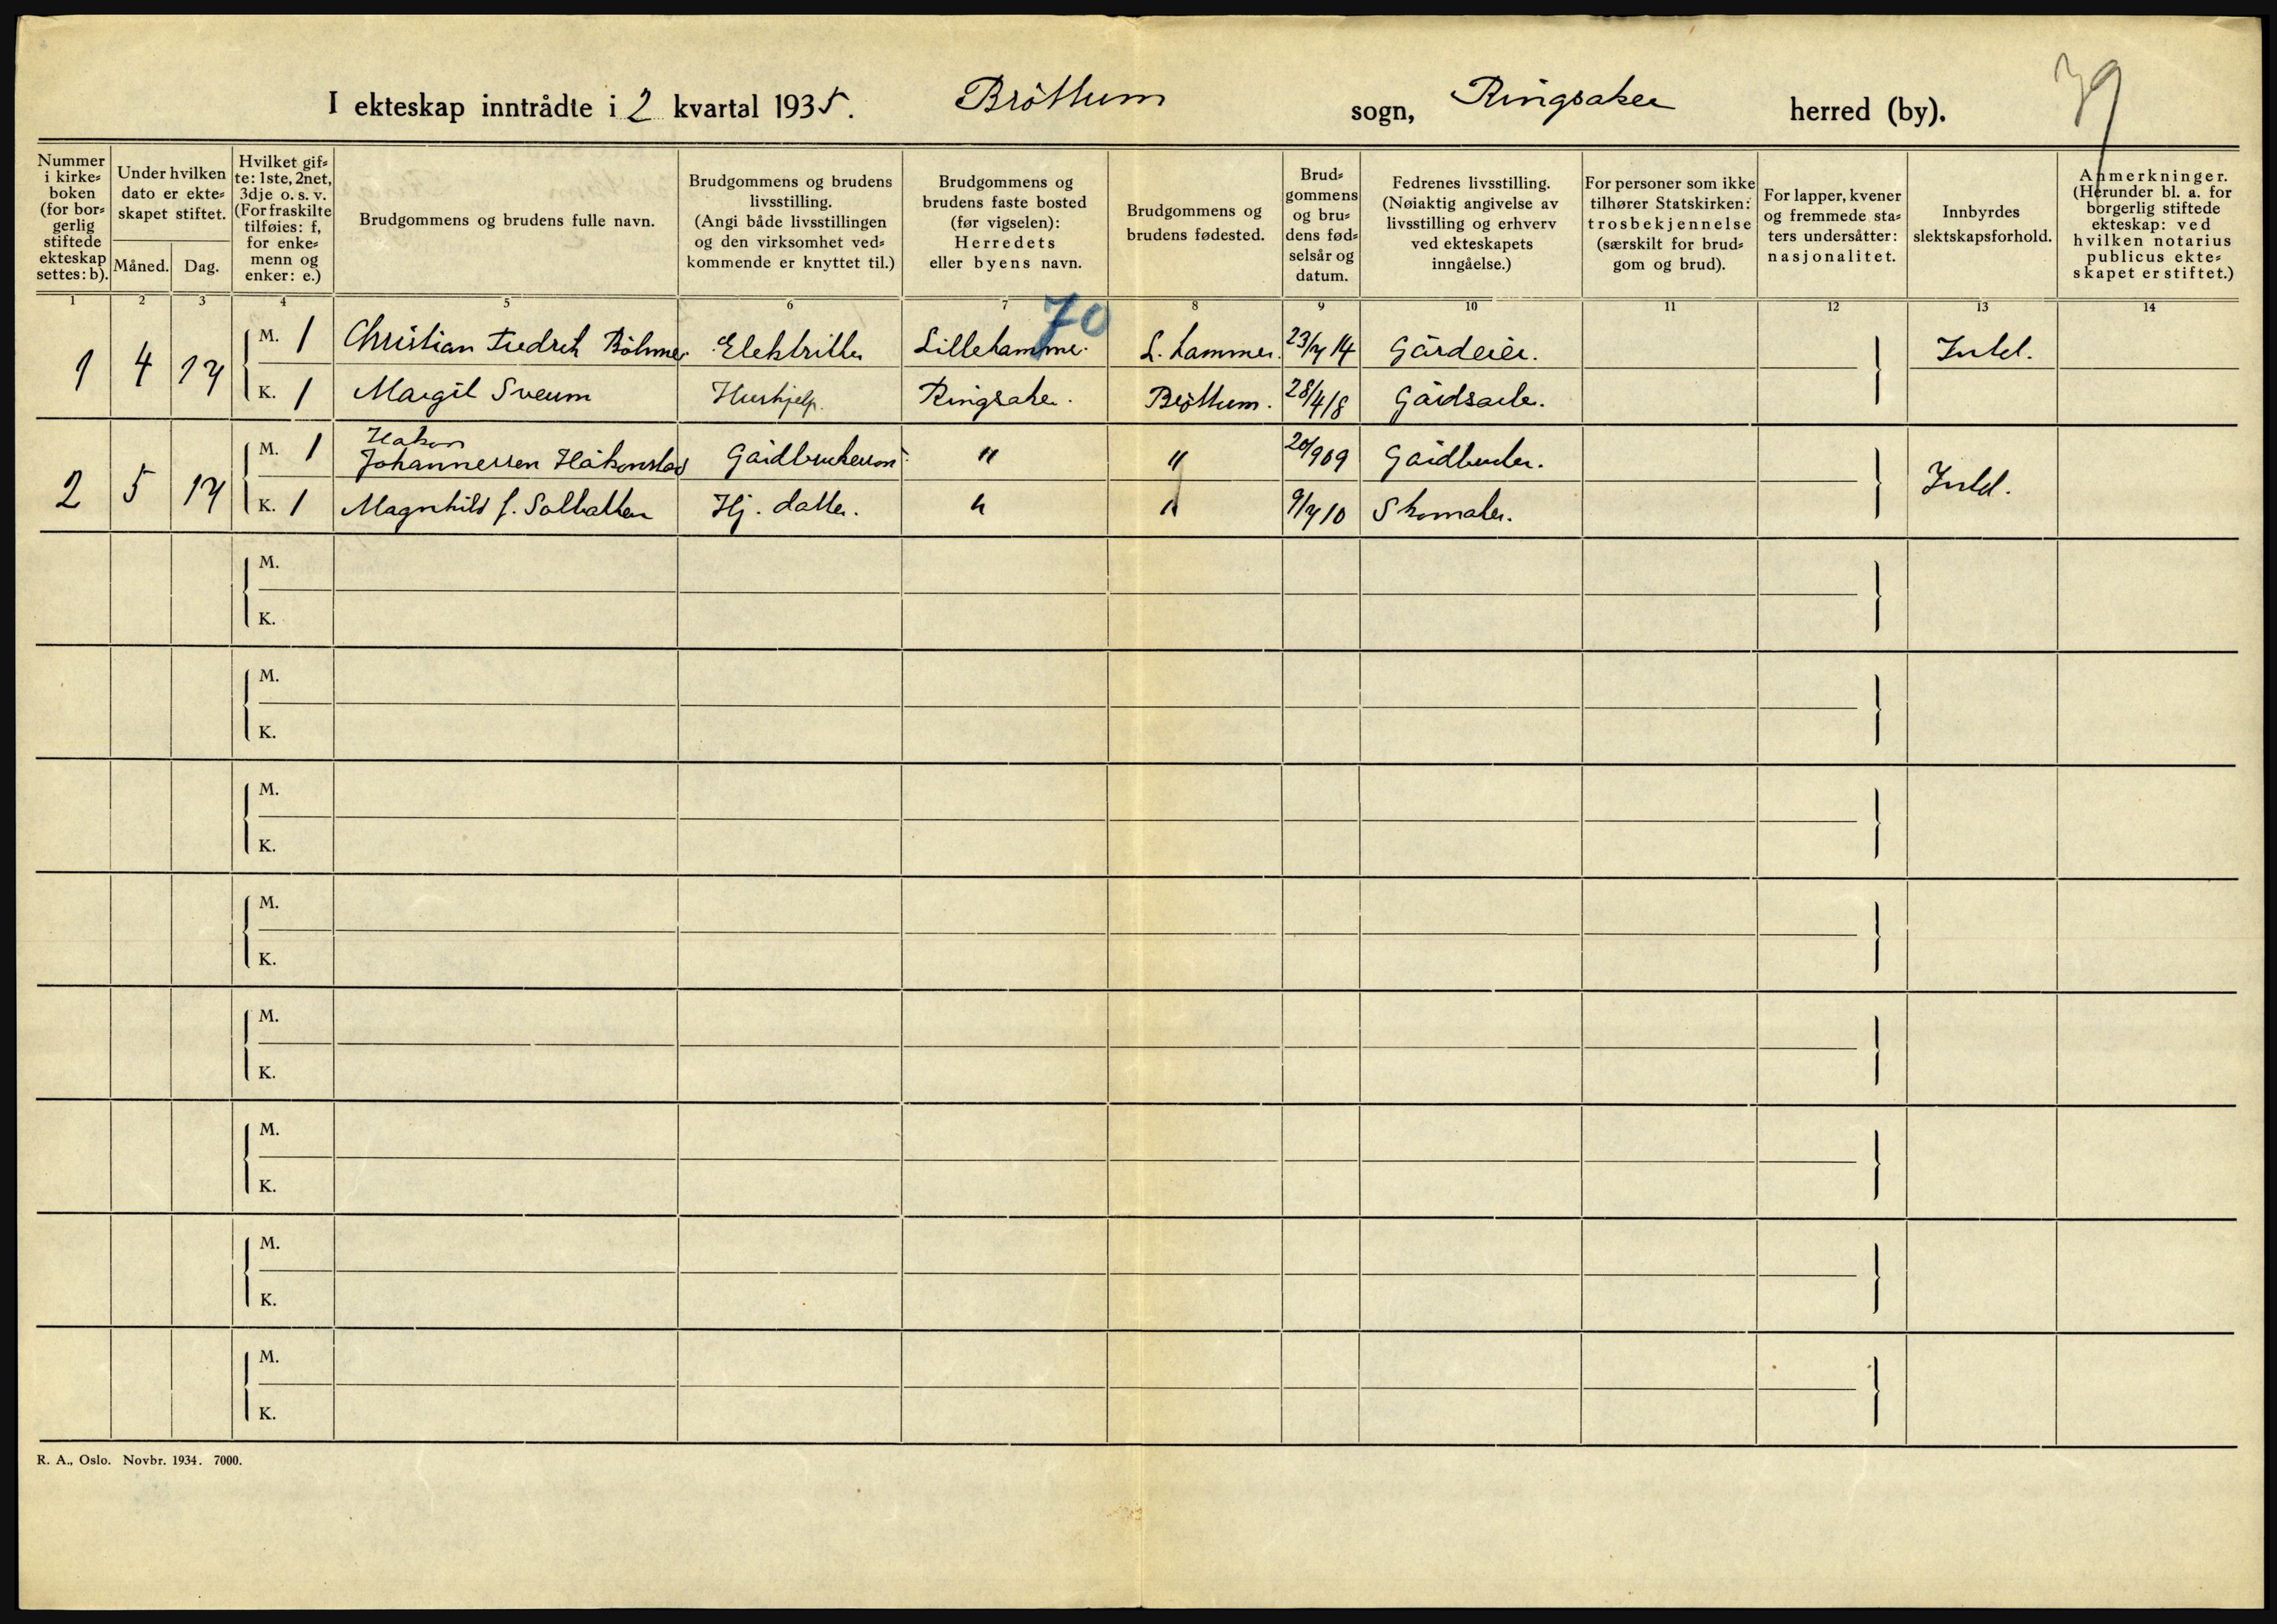 39
I ekteskap inntrådte i 2 kvartal 1935. Bröttum sogn, Ringsaker herred (by).
Nummer i kirke=boken (for bor=gerlig stiftede ekteskap settes: b).
Under hvilken dato er ekte=skapet stiftet.
Måned.
Dag.
Hvilket gif=te: 1ste, 2net, 3dje o. s. v. (For fraskilte tilføies: f, for enke=menn og enker: e.)
Brudgommens og brudens fulle navn.
Brudgommens og brudens livsstilling. (Angi både livsstillingen og den virksomhet ved=kommende er knyttet til.)
Brudgommens og brudens faste bosted (før vigselen): Herredets eller byens navn.
Brudgommens og brudens fødested.
Brud=gommens og bru=dens fød=selsår og datum.
Fedrenes livsstilling. (Nøiaktig angivelse av livsstilling og erhverv ved ekteskapets inngåelse.)
For personer som ikke tilhører Statskirken: trosbekjennelse (særskilt for brud=gom og brud).
For lapper, kvener og fremmede sta=ters undersåtter: nasjonalitet.
Innbyrdes slektskapsforhold.
Anmerkninger. (Herunder bl. a. for borgerlig stiftede ekteskap: ved hvilken notarius publicus ekte=skapet er stiftet.)
1 2 3 4 5 6 7 8 9 10 11 12 13 14
70
1 4 14 M. 1 Christian Fredrik Böhmer Elektriker Lillehammer. L. hammer. 23/4 14 Gårdeier. Intet.
K. 1 Margit Sveum Hushjelp. Ringsaker. Bröttum. 28/4 18 Gårdsarb.
2 5 14 M. 1 Håkon
Johannessen Håkonstad Gårdbrukersøn. " " 20/9 09 Gårdbruker. Intet.
K. 1 Magnhild f. Solbakken Hj. datter. " " 9/4 10 Skomaker.
M.
K.
M.
K.
M.
K.
M.
K.
M.
K.
M.
K.
M.
K.
M.
K.
R. A., Oslo. Novbr. 1934. 7000.